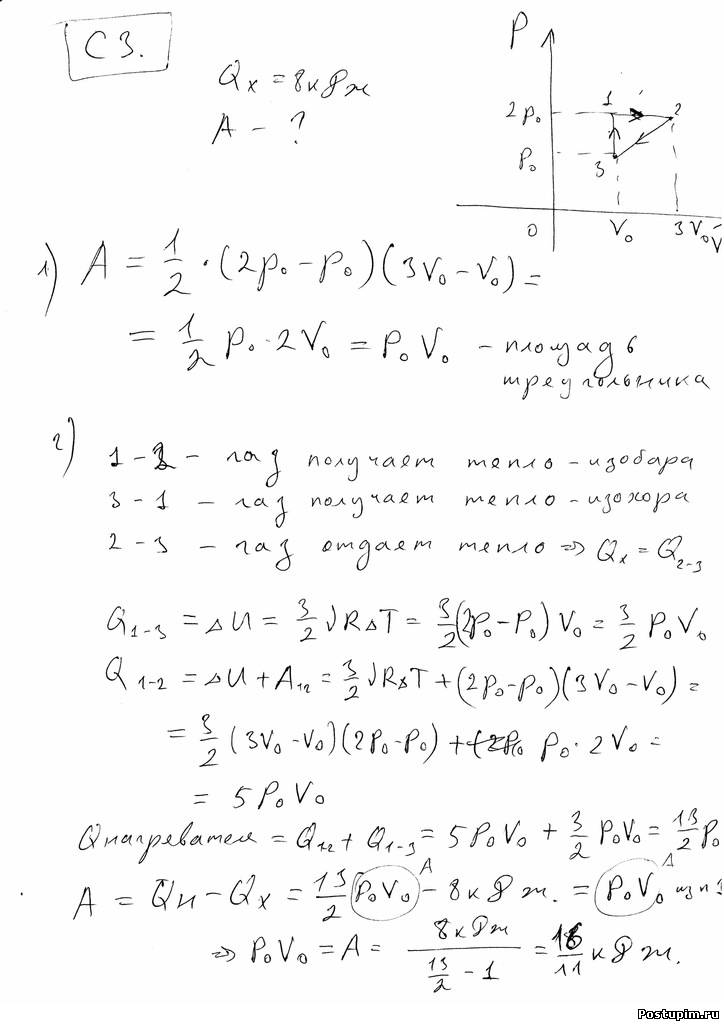 С 3.
Qx = 8кДж
A - ?
P
2p₀
P₀
1
2
3
0
V₀
3V₀
V
1) A = 1/2 · (2p₀ - p₀)(3V₀ - V₀) =
= 1/2 p₀ · 2V₀ = P₀V₀ - площадь
треугольника
2)
1-2 - газ получает тепло - изобара
3-1 - газ получает тепло - изохора
2-3 - газ отдает тепло => Qx = Q₂₋₃
Q₁₋₃ = ΔU = 3/2 νRΔT = 3/2 (2p₀ - P₀) V₀ = 3/2 P₀V₀
Q₁₋₂ = ΔU + A₁₂ = 3/2 νRΔT + (2p₀ - p₀)(3V₀ - V₀) =
= 3/2 (3V₀ - V₀)(2P₀ - P₀) + P₀ · 2V₀ =
= 5P₀V₀
Qнагревателя = Q₁₂ + Q₁₋₃ = 5P₀V₀ + 3/2 P₀V₀ = 13/2 P₀
A = Qн - Qx = 13/2 P₀V₀ A - 8кДж. = P₀V₀ A из п 1
=> P₀V₀ = A = 8кДж / (13/2 - 1) = 16/11 кДж.
Postupim.ru